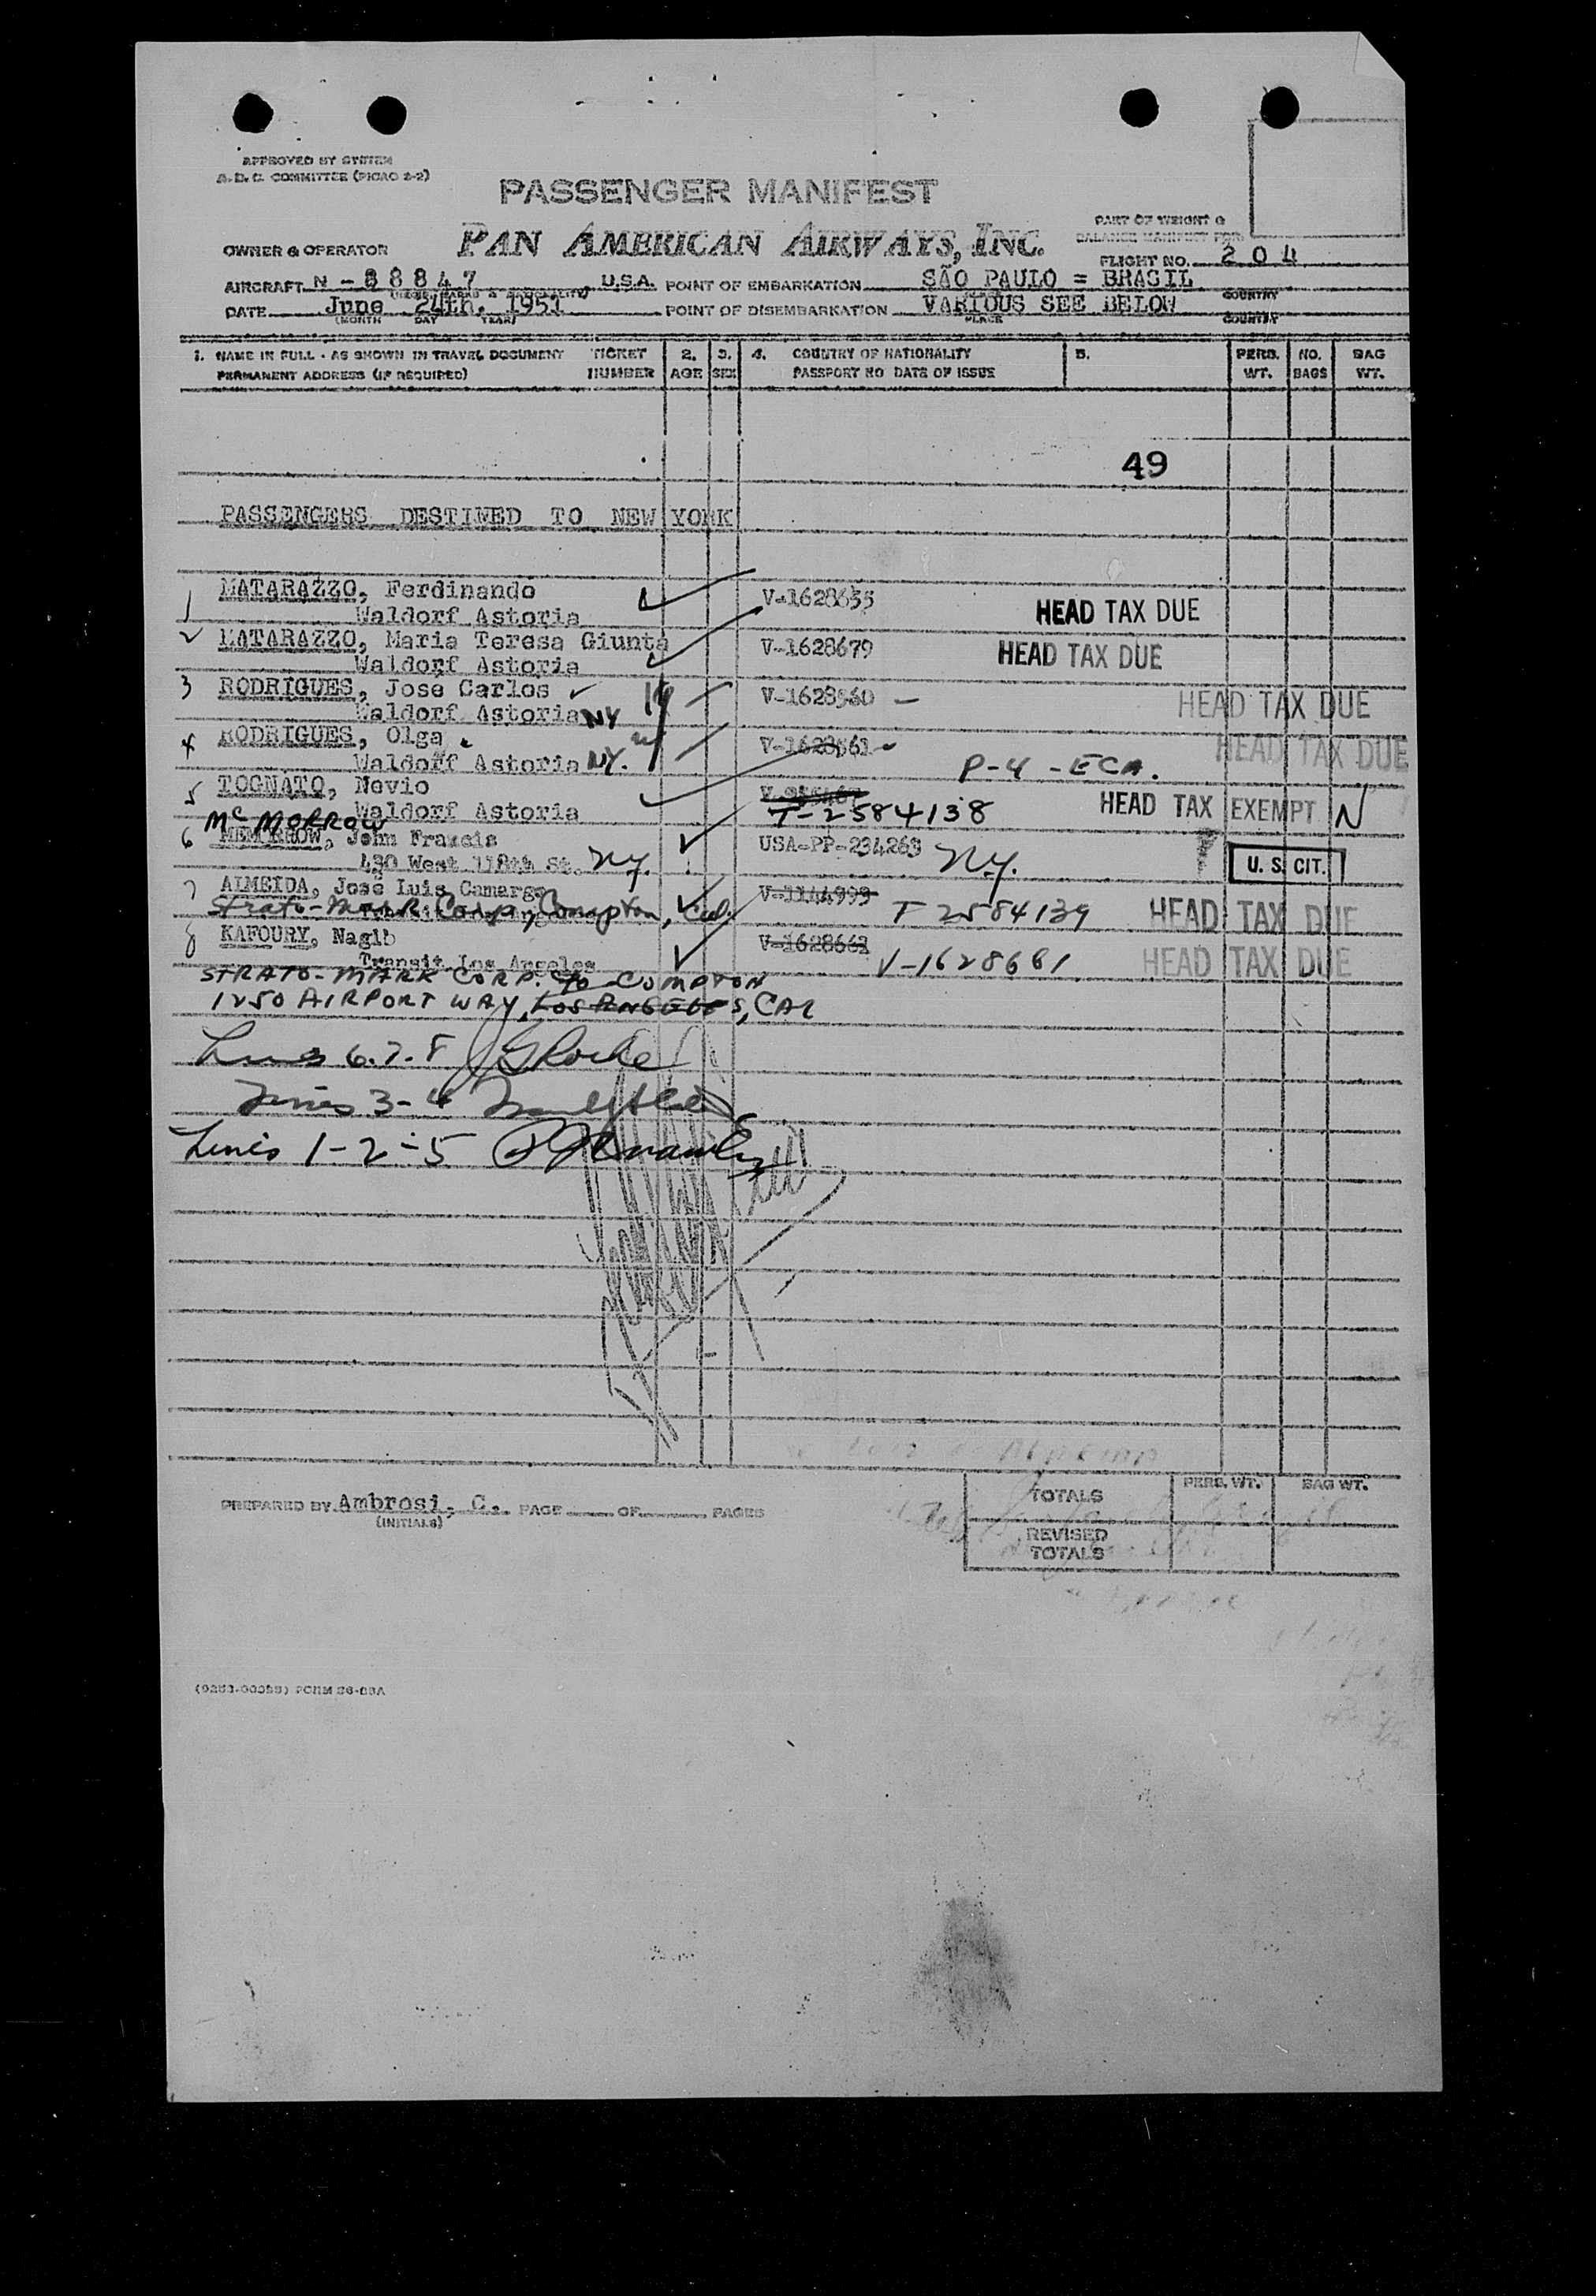 APPROVED BY SYSTEM
A.D.C. COMMITTEE (PICAO 2-2)
PASSENGER MANIFEST
PAN AMERICAN AIRWAYS, INC.
PART OF WEIGHT &
BALANCE MANIFEST FOR
OWNER & OPERATOR
FLIGHT NO. 204
AIRCRAFT N-88847 U.S.A. POINT OF EMBARKATION SÃO PAULO = BRASIL
COUNTRY
DATE June 24th, 1951 POINT OF DISEMBARKATION VARIOUS SEE BELOW
(MONTH DAY YEAR) PLACE COUNTRY
1. NAME IN FULL - AS SHOWN IN TRAVEL DOCUMENT TICKET 2. 3. 4. COUNTRY OF NATIONALITY 5. PERS. NO. BAG
PERMANENT ADDRESS (IF REQUIRED) NUMBER AGE SEX PASSPORT NO DATE OF ISSUE WT. BAGS WT.
49
PASSENGERS DESTINED TO NEW YORK
1 MATARAZZO, Ferdinando V-1628635 HEAD TAX DUE
Waldorf Astoria
2 MATARAZZO, Maria Teresa Giunta V-1628679 HEAD TAX DUE
Waldorf Astoria
3 RODRIGUES, Jose Carlos V-1628560 HEAD TAX DUE
Waldorf Astoria NY
4 RODRIGUES, Olga V-1628561 HEAD TAX DUE
Waldorf Astoria NY. P-4-ECA.
5 TOGNATO, Nevio
Waldorf Astoria T-2584138 HEAD TAX EXEMPT N
McMORROW
6 MEMORROW, John Francis USA-PP-234263 N.Y.
430 West 118th St. N.Y. U.S. CIT.
7 ALMEIDA, Jose Luis Camargo V-1144999 T 2584139 HEAD TAX DUE
Strato-Mark Corp, Compton, Cal.
8 KAFOURY, Nagib V-1628662 V-1628661 HEAD TAX DUE
Transit Los Angeles
STRATO-MARK CORP. COMPTON
1250 AIRPORT WAY, LOS ANGELES, CAL
Lines 6.7.8
Lines 3-4
Lines 1-2-5
PREPARED BY Ambrosi, C. PAGE OF PAGES
(INITIALS)
TOTALS PERS. WT. BAG WT.
REVISED
TOTALS